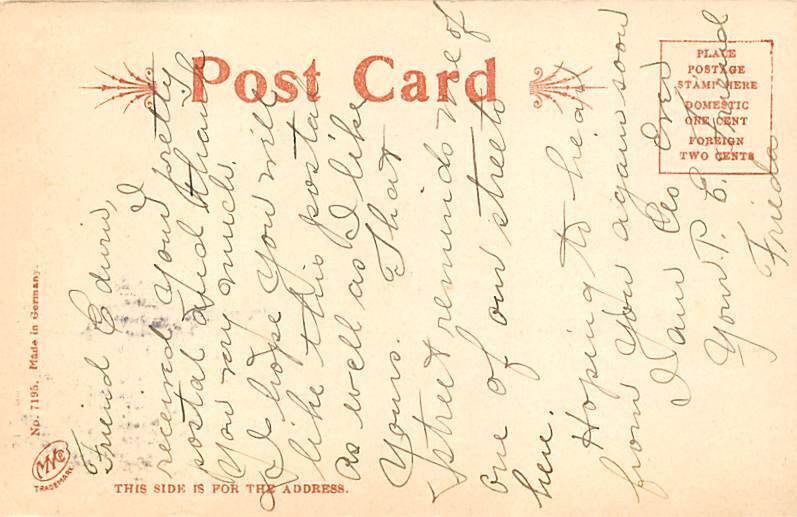 Post Card
PLACE
POSTAGE
STAMP HERE
DOMESTIC
ONE CENT
FOREIGN
TWO CENTS
Friend Edwin, I
received your pretty
postal and thank
you very much.
I hope you will
like this postal
as well as I like
yours. That
street reminds me of
one of our streets
here.
Hoping to hear
from you again soon
I am as Ever
Your P. C. friend
Frieda
No. 7195. Made in Germany.
TRADEMARK
THIS SIDE IS FOR THE ADDRESS.